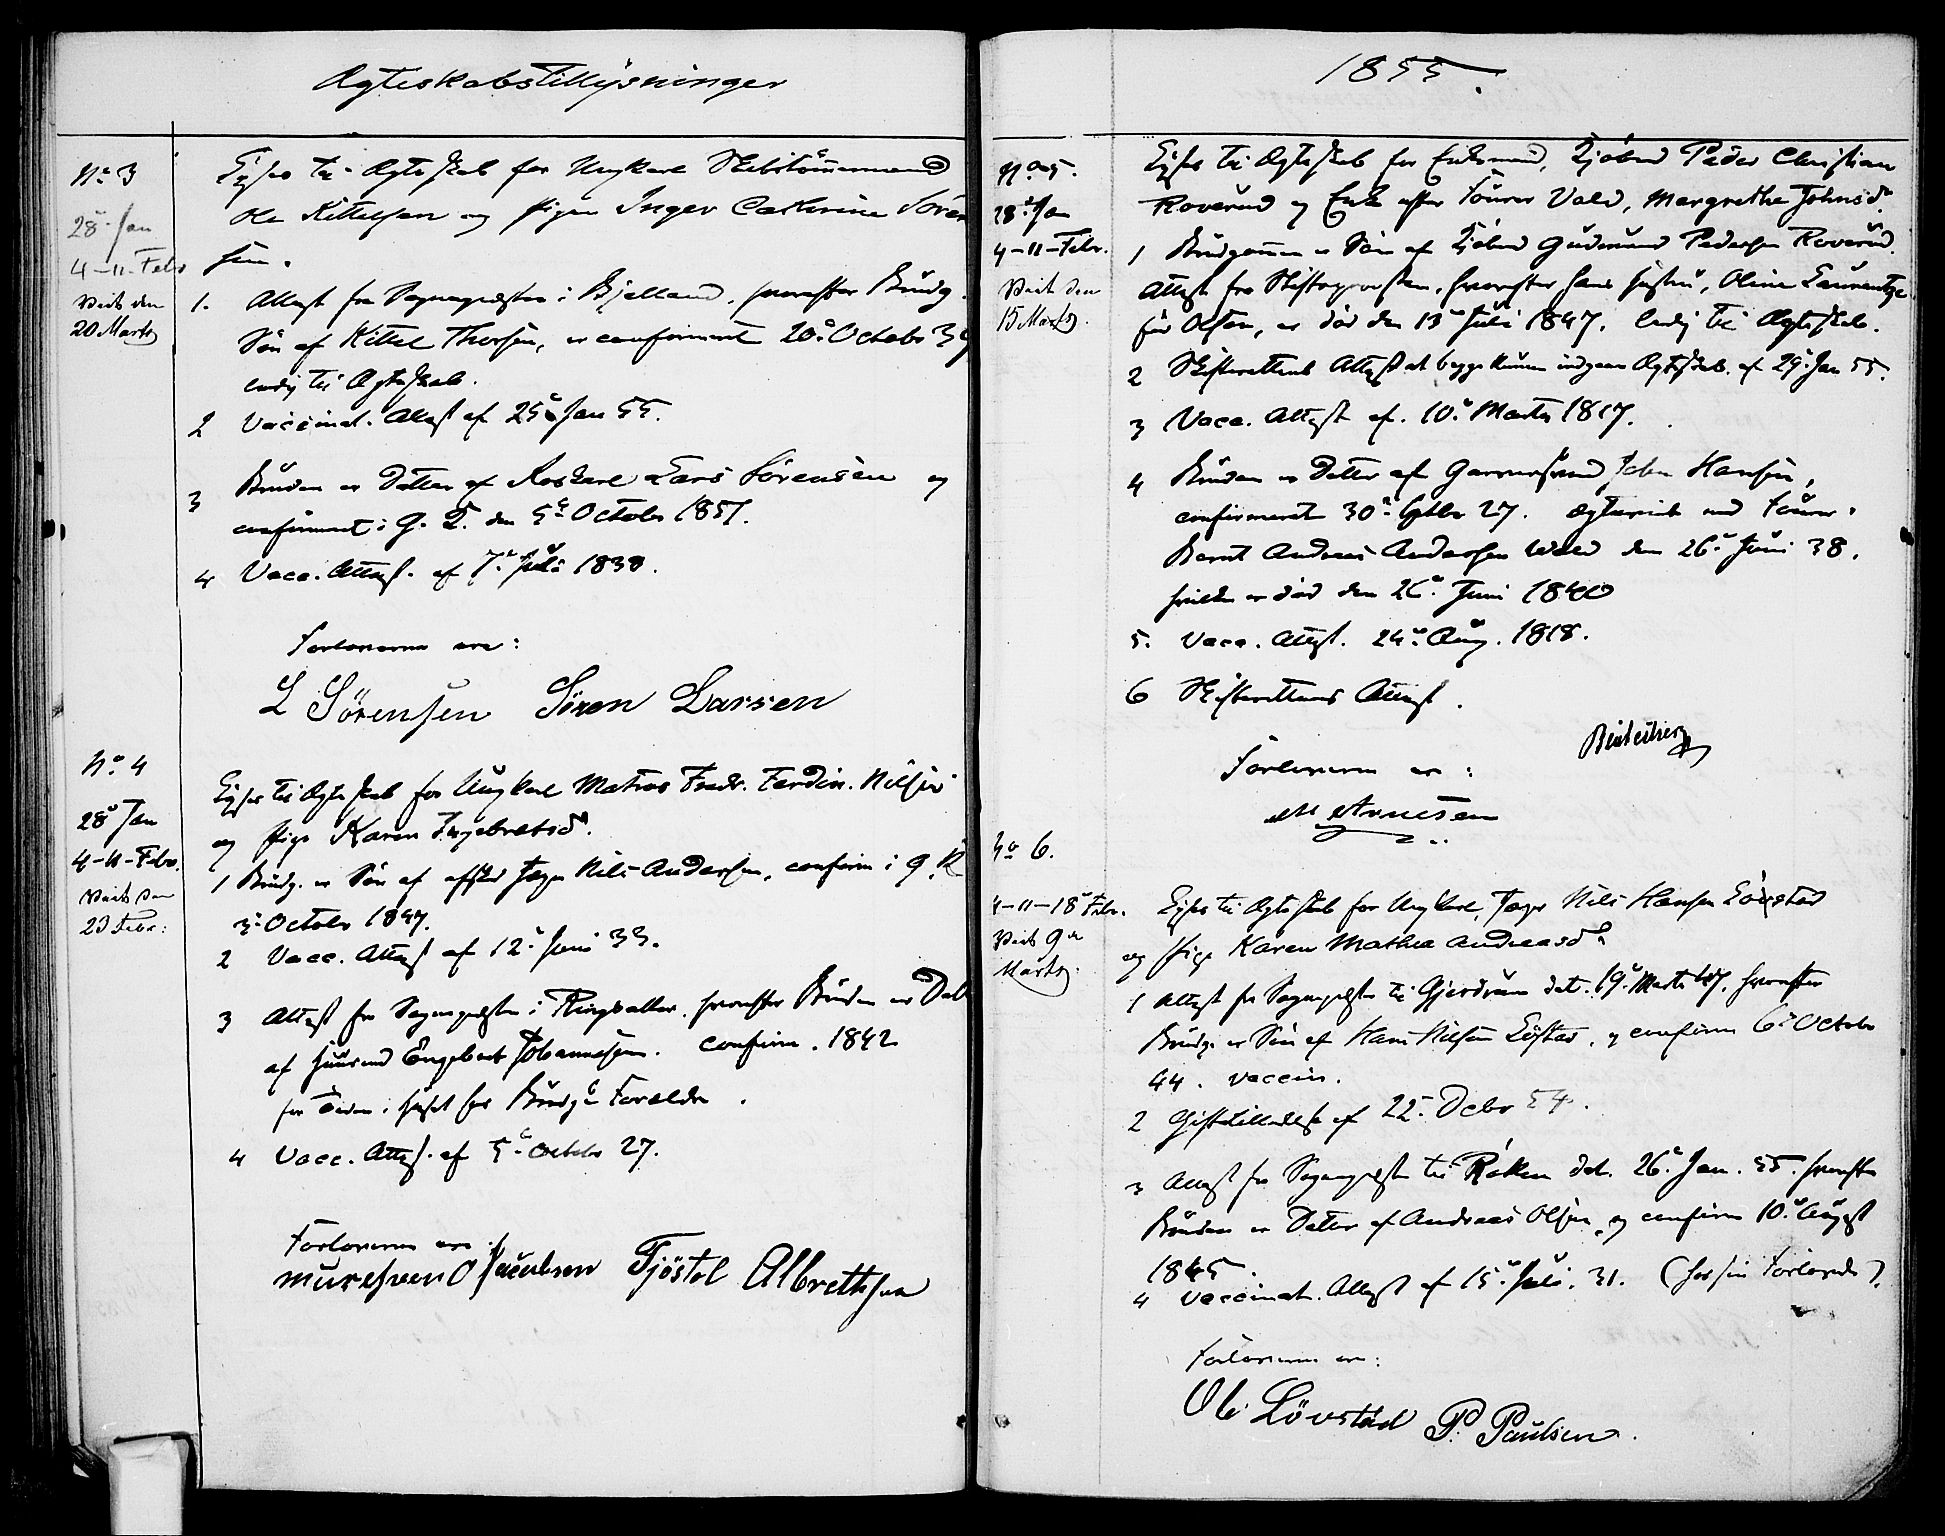 Ægteskabstillysninger
No 3
28 Jan
4-11-Febr
Viet den
20 Marts
Lyses til Ægteskab for Ungkarl Skibstömmermand
Ole Kittelsen og Pigen Inger Cathrine Sören
sen.
1. Attest fra Sognepræsten i Bjelland, hvorefter Brudg.
Sön af Kittel Thorsen, er confirmeret 20 Octobr 39
ledig til Ægteskab.
2 Vaccinat. Attest af 25 Jan 55.
3 Bruden er Datter af Lars Sörensen og
confirmeret i G. den 5 Octobr 1851.
4 Vacc. Attest. af 7 Juli 1838.
Forloverne ere:
L Sörensen Sören Larsen
No 4
28 Jan
4-11-Febr.
Viet den
23 Febr:
Lyses til Ægteskab for Ungkarl Matros Fredr. Ferdin. Nilsen
og Pige Karen Ingebretsd.
1 Brudg. er Sön af Nils Andersen, confirm i G. K
3 Octobr 1847.
2 Vacc. Attest af 12 Juni 33.
3 Attest fra Sognepræsten i Ringsaker, hvorefter Bruden er Datt
af Huusmd Engebret Johannesen. confirm. 1842
for Tiden i Huset hos Brudg Forældre.
4 Vacc. Attest. af 5 Octobr 27.
Forloverne ere
O Jacobsen Tjöstel Albrethsen
1855.
No 5.
28 Jan
4-11-Febr.
Viet den
15 Marts.
Lyses til Ægteskab for Enkemand, Kjöbmd Peder Christian
Roverud og Enke efter Fourer Vald, Margrethe Johnsd.
1 Brudgommen er Sön af Kjöbmd Gudmund Pedersen Roverud.
Attest fra Stiftsprovsten, hvorefter hans Hustru, Oline Laurentze
för Olsen, er död den 13 Juli 1847. ledig til Ægteskab.
2 Skifterettens Attest at begge kunne indgaae Ægteskab. af 29 Jan 55.
3 Vacc. Attest af. 10 Marts 1817.
4 Bruden er Datter af John Hansen,
confirmeret 30 Septbr 27. ægteviet med Fourer
Bernt Andreas Andersen Wald den 26 Juni 38.
hvilken er död den 26 Juni 1840
5. Vacc. Attest. 24 Aug. 1818.
6 Skifterettens Attest.
Forloverne ere:
M Arnesen
No 6.
4-11-18 Febr.
Viet 9de
Marts.
Lyses til Ægteskab for Ungkarl, Nils Hansen Lövstad
og Pige Karen Mathea Andreasd
1 Attest fra Sognepræsten til Gjerdrum dat. 19 Marts 47, hvorefter
Brudg. er Sön af Hans Nilsen Löstad, og confirm 6 Octobr
44. vaccin.
2 Giftetilladelse af 22 Decbr 54.
3 Attest fra Sognepræsten til Röken dat. 26 Jan. 55. hvorefter
Bruden er Datter af Andreas Olsen, og confirm 10 August
1845.
4 Vaccinat. Attest af 15 Juli. 31. (hos sin Forlovede).
Forloverne ere:
Ole Lövstad P. Paulsen.